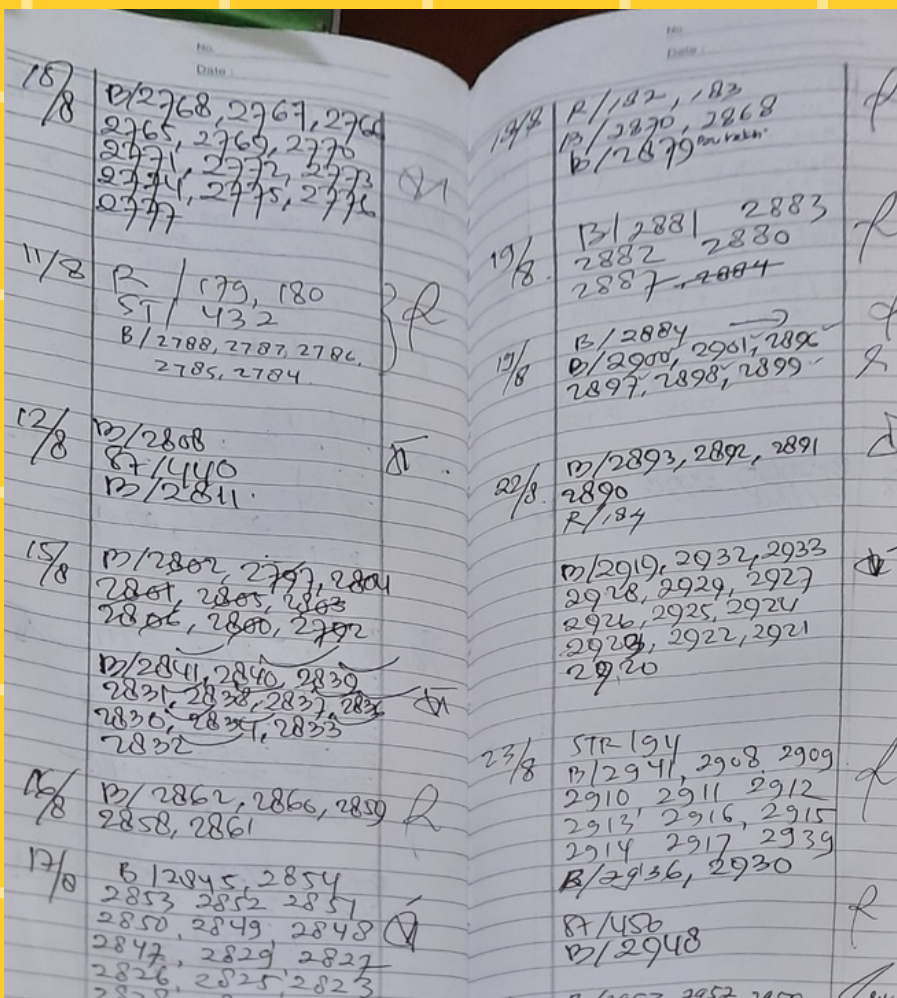 No.
Date :
18/8
B/2768, 2767, 2766
2765, 2769, 2770
2771, 2772, 2773
2774, 2775, 2776
2777
11/8
R / 179, 180
ST / 432
B/2788, 2787, 2786,
2785, 2784
12/8
B/2808
87/440
B/2811
15/8
B/2802, 2797, 2804
2801, 2805, 2803
2806, 2800, 2792
B/2841, 2840, 2839
2831, 2838, 2837, 2836
2830, 2834, 2833
2832
16/8
B/2862, 2866, 2859
2858, 2861
17/8
B/2845, 2854
2853 2852 2851
2850, 2849, 2848
2847, 2829 2827
2826, 2825, 2823
No
Date :
19/8
R/182, 183
B/2870, 2868
B/2879
19/8
B/2881 2883
2882 2880
2887 2884
19/8
B/2884
B/2900, 2901, 2896
2897, 2898, 2899
22/8
B/2893, 2892, 2891
2890
R/184
B/2919, 2932, 2933
2928, 2929, 2927
2926, 2925, 2924
2923, 2922, 2921
2920
23/8
STR/94
B/2941, 2908 2909
2910 2911 2912
2913 2916, 2915
2914 2917 2939
B/2936, 2930
87/456
B/2948